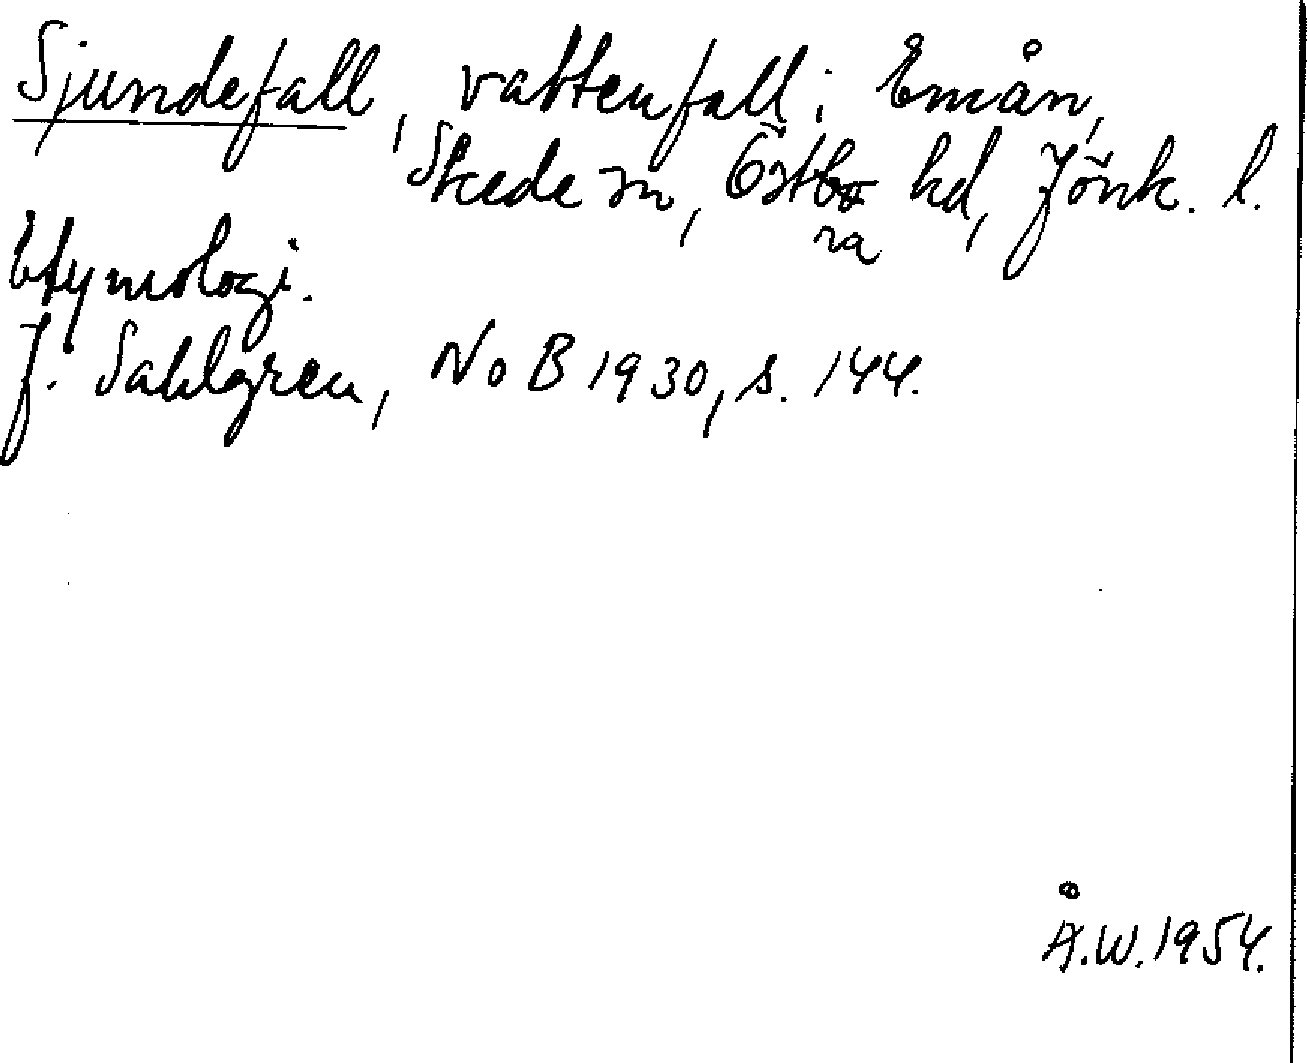 Sjundefall, vattenfall i Emån,
Skede sn, Östbo hd, Jönk. l.
ra
Etymologi.
J. Sahlgren, NoB 1930, s. 144.
Å.W. 1954.